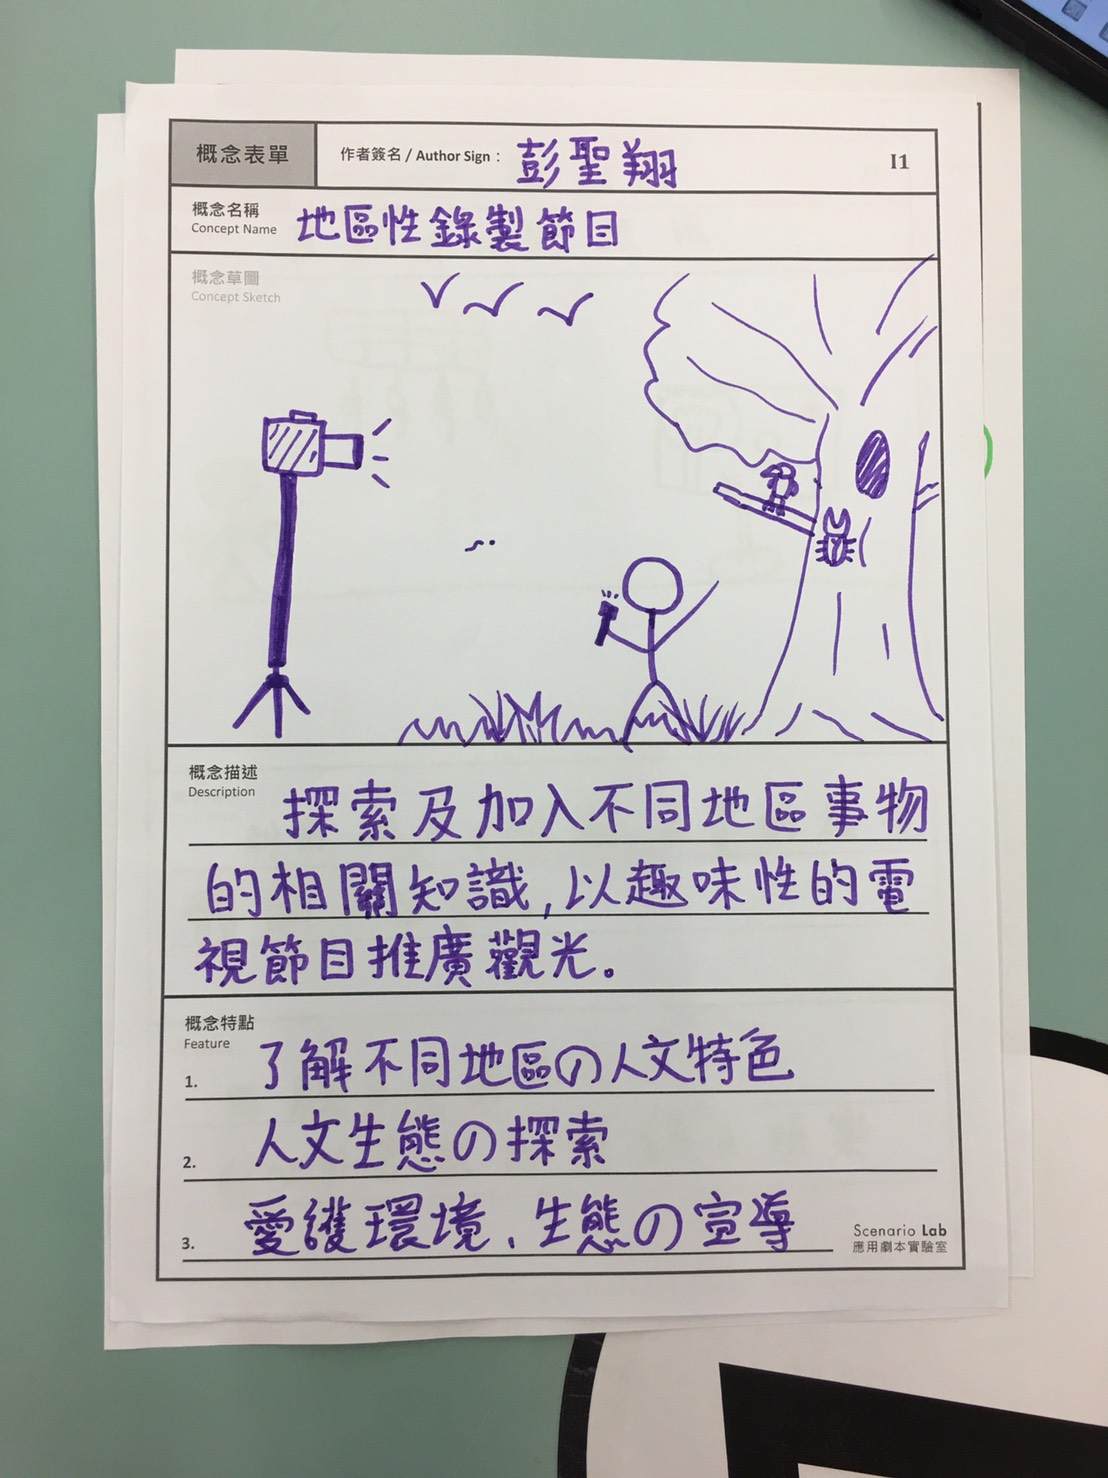 概念表單
作者簽名 / Author Sign： 彭聖翔
I1
概念名稱
Concept Name
地區性錄製節目
概念草圖
Concept Sketch
概念描述
Description
探索及加入不同地區事物
的相關知識,以趣味性的電
視節目推廣觀光。
概念特點
Feature
1. 了解不同地區の人文特色
2. 人文生態の探索
3. 愛護環境、生態の宣導
Scenario Lab
應用劇本實驗室